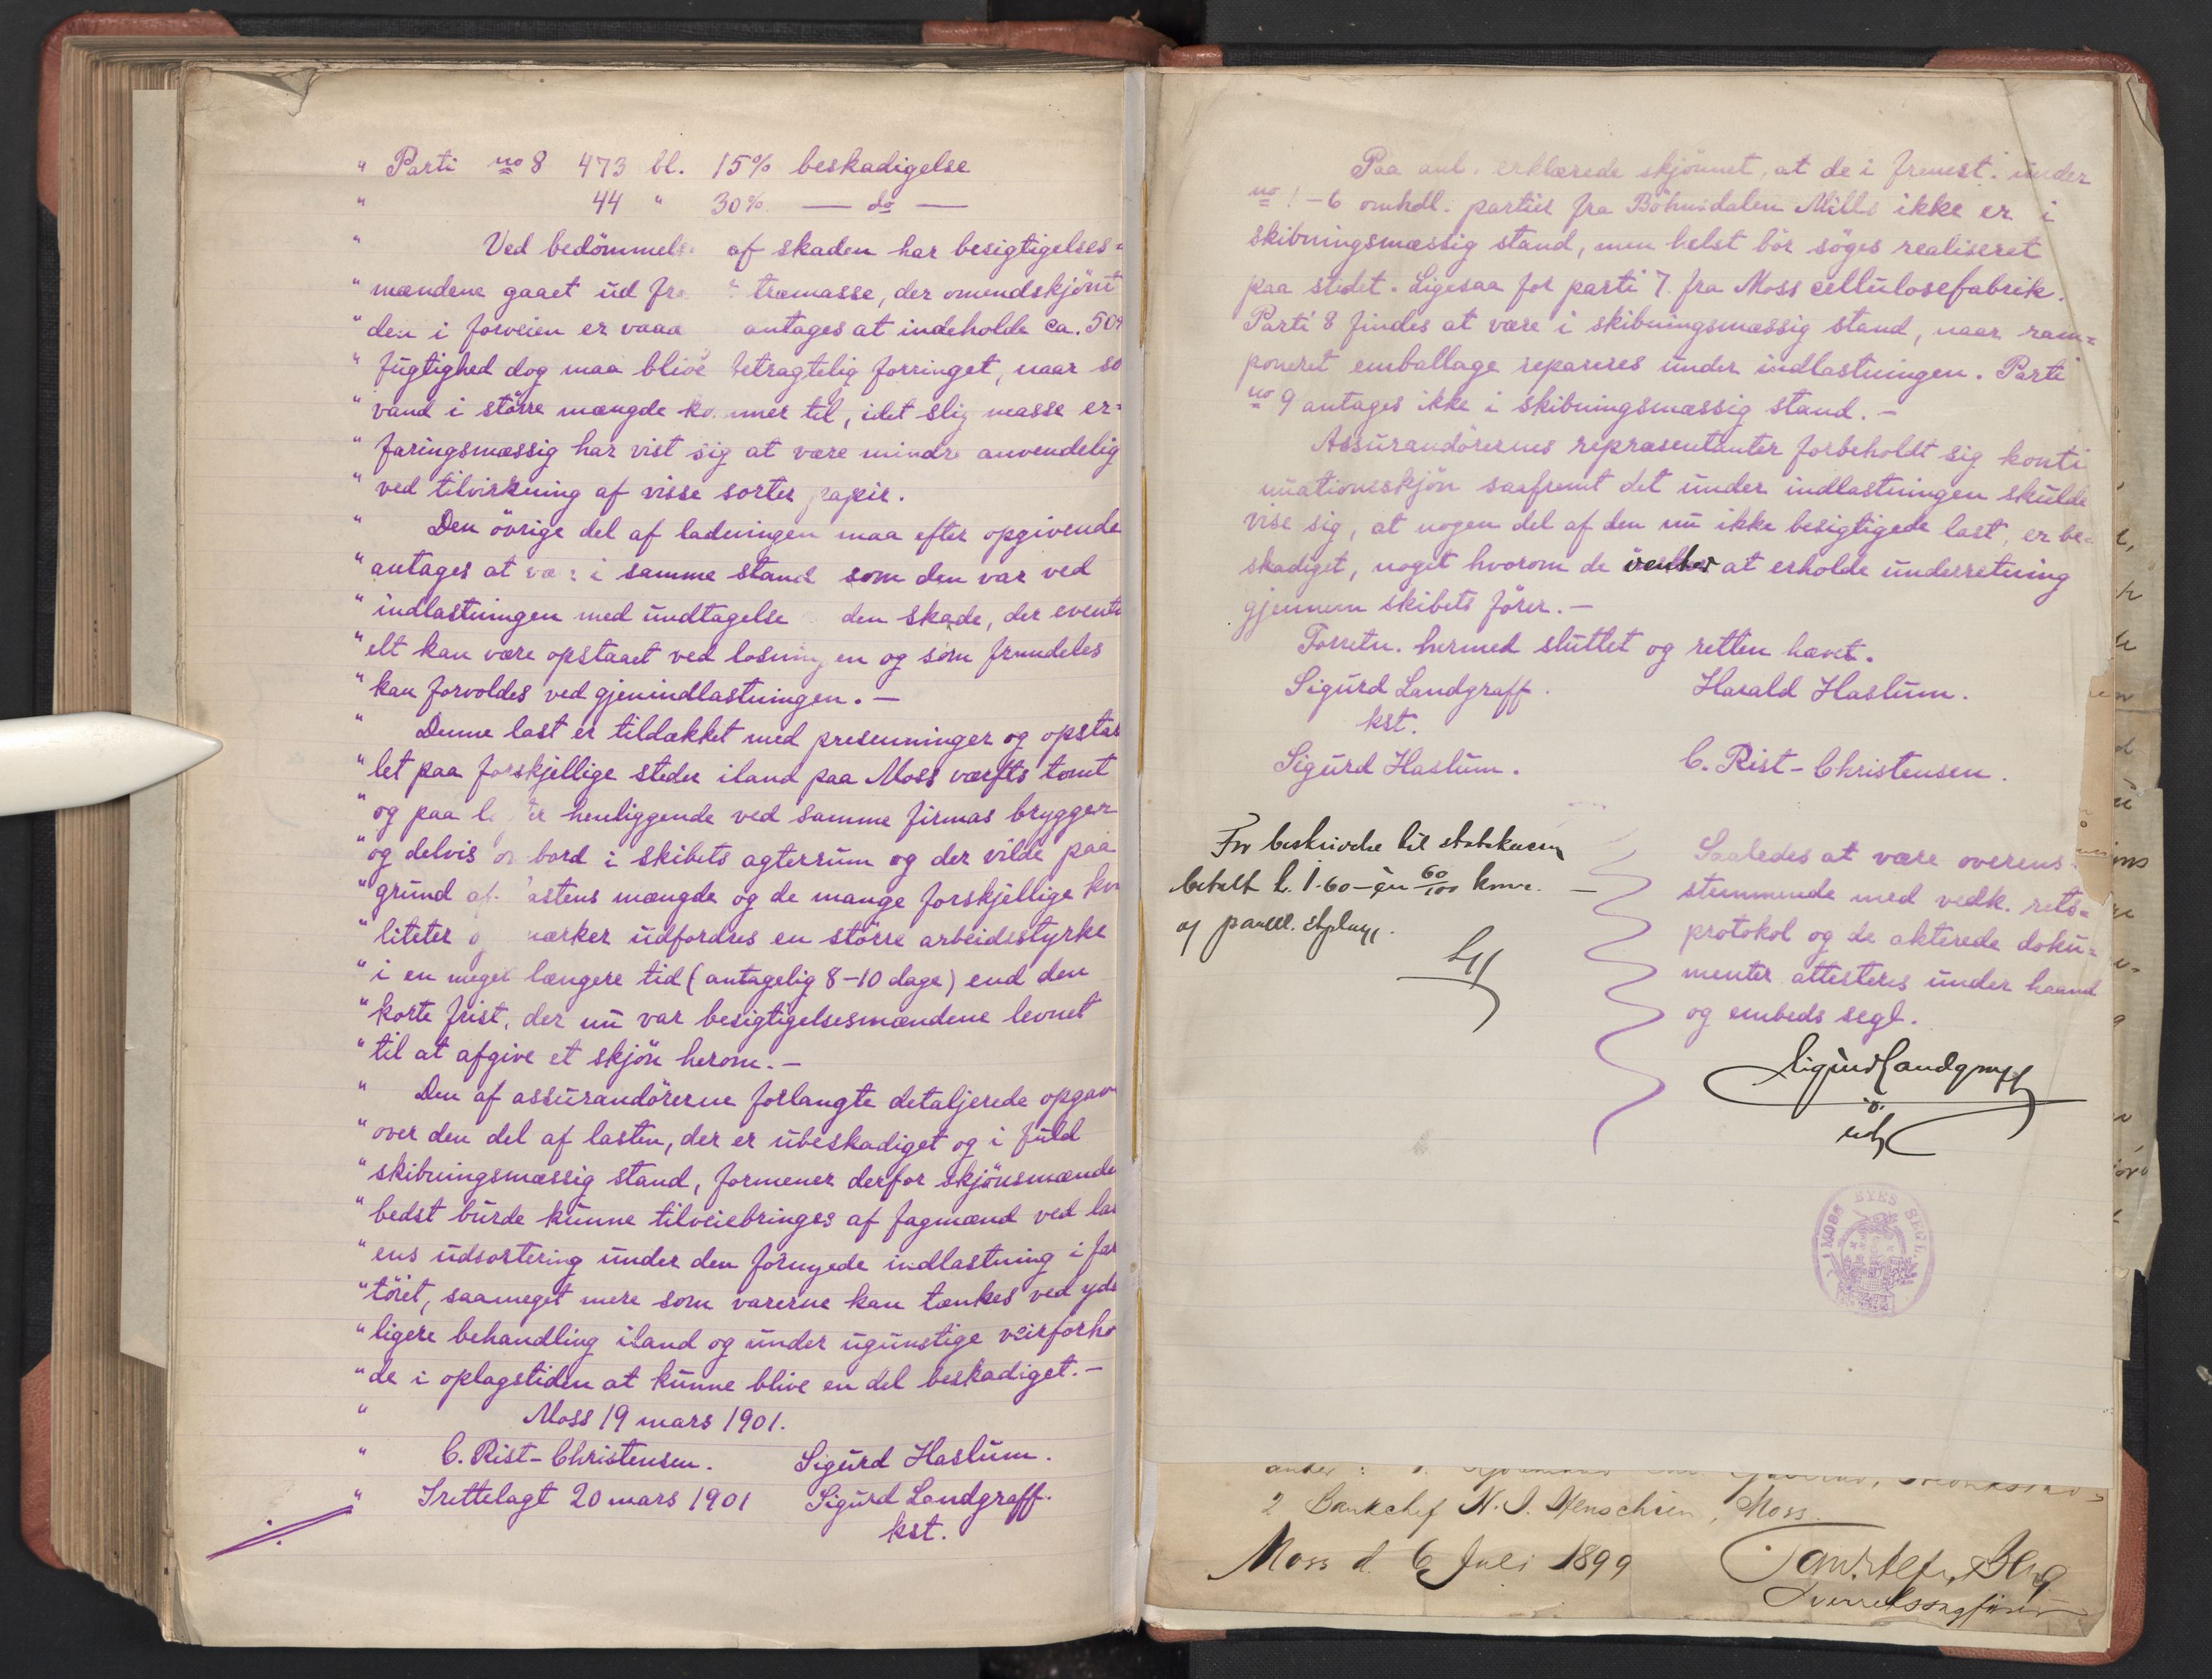 " Parti no 8 473 bl. 15% beskadigelse
" 44 " 30% — do —
" Ved bedömmels af skaden har besigtigelses=
" mændene gaaet ud fra træmasse, der omendskjönt
" den i forveien er vaad antages at indeholde ca. 50%
" fugtighed dog maa blive betragtelig forringet, naar so
" vand i större mængde kommer til, idet slig masse er=
" faringsmæssig har vist sig at være mindre anvendelig
" ved tilvirkning af visse sorter papir.
" Den övrige del af ladningen maa efter opgivende
" antages at være i samme stand som den var ved
" indlastningen med undtagelse den skade, der eventu
" elt kan være opstaaet ved losningen og som fremdeles
" kan forvoldes ved gjenindlastningen. —
" Denne last er tildækket med presenninger og opstab
" let paa forskjellige steder iland paa Moss værfts tomt
" og paa henliggende ved samme firmas brygger
" og delvis om bord i skibets agterrum og der vilde paa
" grund af lastens mængde og de mange forskjellige kva
" liteter og mærker udfordres en större arbeidsstyrke
" i en meget længere tid (antagelig 8-10 dage) end den
" korte frist, der nu var besigtigelsesmændene levnet
" til at afgive et skjön herom. —
" Den af assurandörerne forlangte detaljerede opgave
" over den del af lasten, der er ubeskadiget og i fuld
" skibningsmæssig stand, formener derfor skjönsmænde
" bedst burde kunne tilveiebringes af fagmænd ved las
" ens udsortering under den fornyede indlastning i far
" töiet, saameget mere som varerne kan tænkes ved yder
" ligere behandling iland og under ugunstige veirforho
" de i oplagstiden at kunne blive en del beskadiget. —
" Moss 19 mars 1901.
" C. Rist-Christensen. Sigurd Haslum.
" Irettelagt 20 mars 1901 Sigurd Landgraff.
kst.
Paa anl. erklærede skjönnet, at de i fremst. under
no 1-6 omhdl. partier fra Böhnsdalen Mills ikke er i
skibningsmæssig stand, men helst bör söges realiseret
paa stedet. Ligesaa for parti 7 fra Moss cellulosefabrik.
Parti 8 findes at være i skibningsmæssig stand, naar ram=
poneret emballage repareres under indlastningen. Parti
no 9 antages ikke i skibningsmæssig stand. —
Assurandörernes repræsentanter forbeholdt sig konti
nuationsskjön saafremt det under indlastningen skulde
vise sig, at nogen del af den nu ikke besigtigede last, er be=
skadiget, noget hvorom de venter at erholde underretning
gjennem skibets förer. —
Forretn. hermed sluttet og retten hævet.
Sigurd Landgraff. Harald Haslum.
kst.
Sigurd Haslum. C. Rist-Christensen.
For beskrivelse til statskassen
betalt k. 1.60 — en 60/100 krone. —
og
Saaledes at være overens=
stemmende med vedk. rets=
protokol og de akterede doku=
menter attesteres under haand
og embeds segl.
Sigurd Landgraff
MOSS BYES SEGL.
2 Bankchef N. J. Moss.
Moss d. 6 Juli 1899